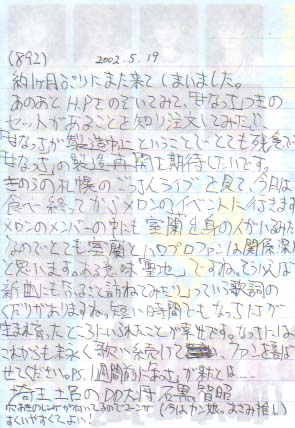 (892) 2002.5.19
約1ヶ月ぶりにまた来てしまいました。
あのあとH.Pをのぞいてみて、「甘なっさ」つきの
セットがあることを知り注文してみたが、
「甘なっさ」が製造中止ということでとても残念です
「甘なっさ」の製造再開を期待したいです。
きのうの札幌のごっさんライブを見て、今日は
食べ終ってからメロンのイベントに行きます
メロンのメンバーの中にも室蘭出身の人がいるみたい
なのでとても室蘭とハロプロファンは関係深い
と思います。ある意味聖地ですね。そういえば
新曲にも「ふるさと訪ねてみたり」っていう歌詞の
くだりがありますね。短い時間でもなっちが
生まれ育ったところにいられたことが幸せです。なっちには
これからも末永く歌い続けて ファンを喜ば
せてください。P.S.1週間前になっちが来たとは…
埼玉土呂のDD大将 石黒智昭
穴あきのレンゲがついてるのでラーメンが (うはカン娘。あさみ推し)
すくいやすくてよい!